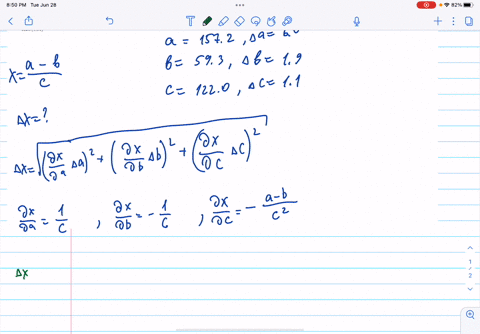 8:50 PM Tue Jun 28
82%
a = 157.2 , Δa =
x = \frac{a - b}{c}
b = 59.3 , Δb = 1.9
c = 122.0 , Δc = 1.1
Δx = ?
Δx = \sqrt{(\frac{∂x}{∂a} Δa)^2 + (\frac{∂x}{∂b} Δb)^2 + (\frac{∂x}{∂c} Δc)^2}
\frac{∂x}{∂a} = \frac{1}{c} , \frac{∂x}{∂b} = - \frac{1}{c} , \frac{∂x}{∂c} = - \frac{a-b}{c^2}
Δx
1
2